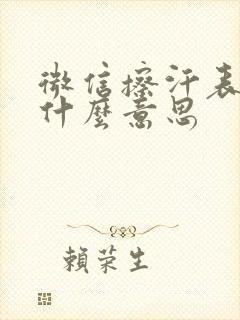 微信擦汗表
什麼意思
賴荣生